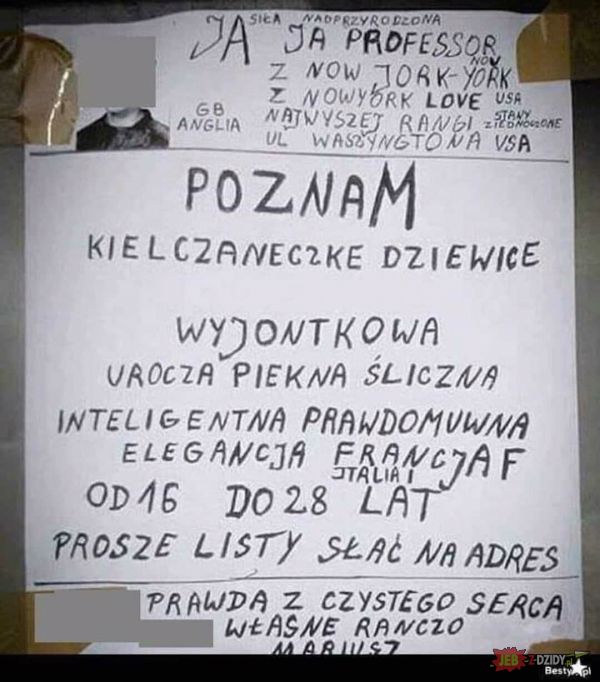 SIŁA NADPRZYRODZONA
JA JA PROFESSOR
NOW
Z NOW JORK-YORK
Z NOWYORK LOVE USA
GB
ANGLIA
NAJWYSZEJ RANGI STANY ZIEDNOCZONE
UL WASZYNGTONA VSA
POZNAM
KIELCZANECZKE DZIEWICE
WYJONTKOWA
UROCZA PIEKNA ŚLICZNA
INTELIGENTNA PRAWDOMUWNA
ELEGANCJA FRANCJA F
ITALIA I
OD 16 DO 28 LAT
PROSZE LISTY SŁAĆ NA ADRES
PRAWDA Z CZYSTEGO SERCA
WŁASNE RANCZO
MARIUSZ
JEBZDZIDY.pl
Besty.pl